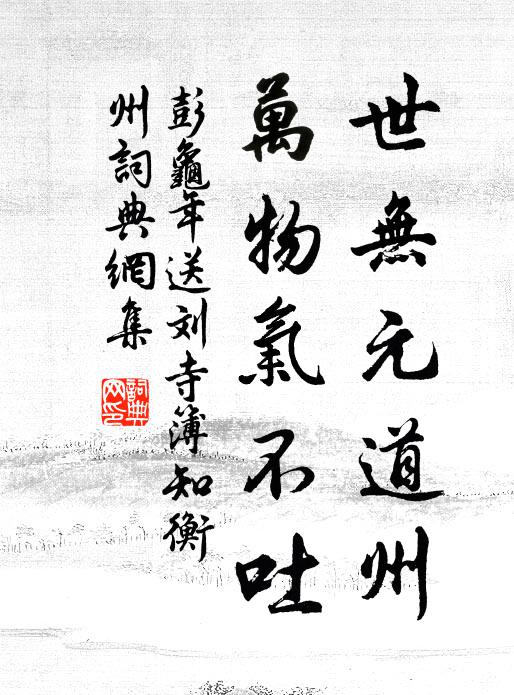 世無元道州
萬物氣不吐
彭龜年送刘寺簿知衡
州詞典網集
詞典
网印